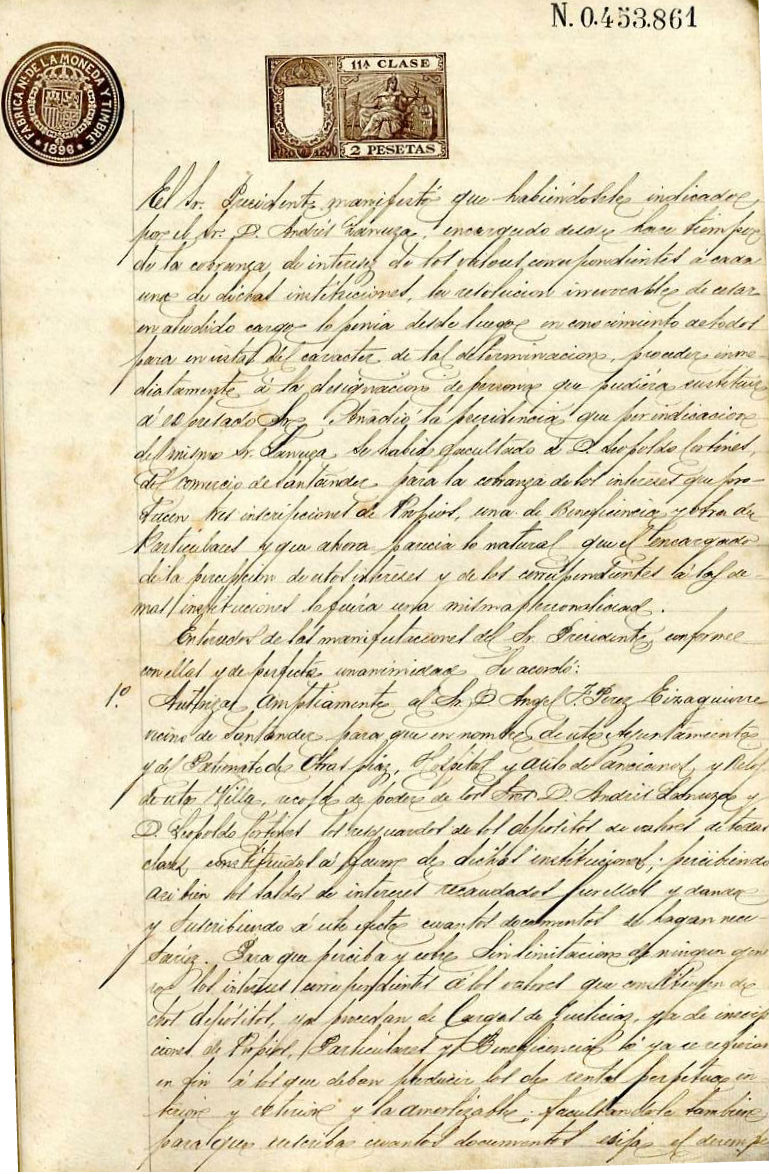 N. 0.453.861
FABRICA NL DE LA MONEDA Y TIMBRE
1896
11ª CLASE
2 PESETAS
El Sr. Presidente manifestó que habiéndosele indicado
por el Sr. D. Andrés Lanuza, encargado desde hace tiempo
de la cobranza de intereses de los valores correspondientes a cada
una de dichas instituciones, la resolucion irrevocable de cesar
en aludido cargo lo ponia desde luego en conocimiento de todos
para en vista del caracter de tal determinacion, proceder inme-
diatamente á la designacion de persona que pudiera sustituir
á expresado Sr. Añadió la presidencia que por indicacion
del mismo Sr. Lanuza se habia facultado á D. Leopoldo Cortines,
del comercio de Santander para la cobranza de los intereses que pro-
ducen tres inscripciones de Propios, una de Beneficencia y otra de
Particulares y que ahora parecia lo natural que el encargado
de la percepcion de estos intereses y de los correspondientes á las de-
mas instituciones lo fuera una misma personalidad.
Enterados de las manifestaciones del Sr. Presidente, conforme
con ellas y de perfecta unanimidad Se acordó:
1º Autorizar ampliamente al Sr. D. Angel F. Perez Eizaguirre
vecino de Santander para que en nombre de este Ayuntamiento
y del Patronato de Obras pias, Hospital y asilo de ancianos, y Reloj
de esta Villa, recoja de poder de los Sres D. Andrés Lanuza y
D. Leopoldo Cortines los resguardos de los depósitos de valores de todas
clases constituidos á favor de dichas instituciones; percibiendo
asi bien los saldos de intereses recaudados por ellos y dando
y suscribiendo á este efecto cuantos documentos se hagan nece-
sarios. Para que perciba y cobre sin limitacion de ningun gene-
ro los intereses correspondientes á los valores que constituyen di-
chos depósitos, ya procedan de Cargas de Justicia, ya de inscrip-
ciones de Propios, Particulares y Beneficencia ó ya se refieran
en fin á los que deban producir los de renta perpetua in-
terior y exterior y la amortizable; facultandole tambien
para que suscriba cuantos documentos exija el desempe